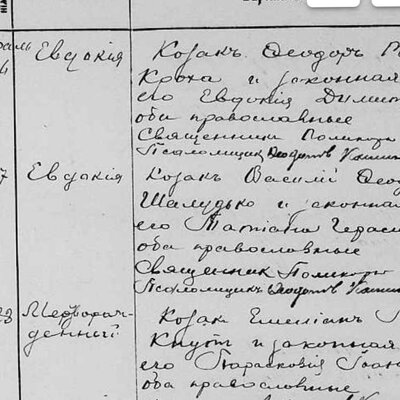 Евдокія
Козакъ Ѳеодоръ
Кроха и законная
его Евдокія Димит
оба православные
Священникъ
Псаломщикъ Ѳеодотъ
7
Евдокія
Козакъ Василій Ѳео
Шалудько и законна
его Татіана Гераси
оба православные
Священник
Псаломщикъ Ѳеодотъ
23
Мертворож-
денный
Козак Емеліанъ
Кнутъ и законная
его Парасковія Іоан
оба православные